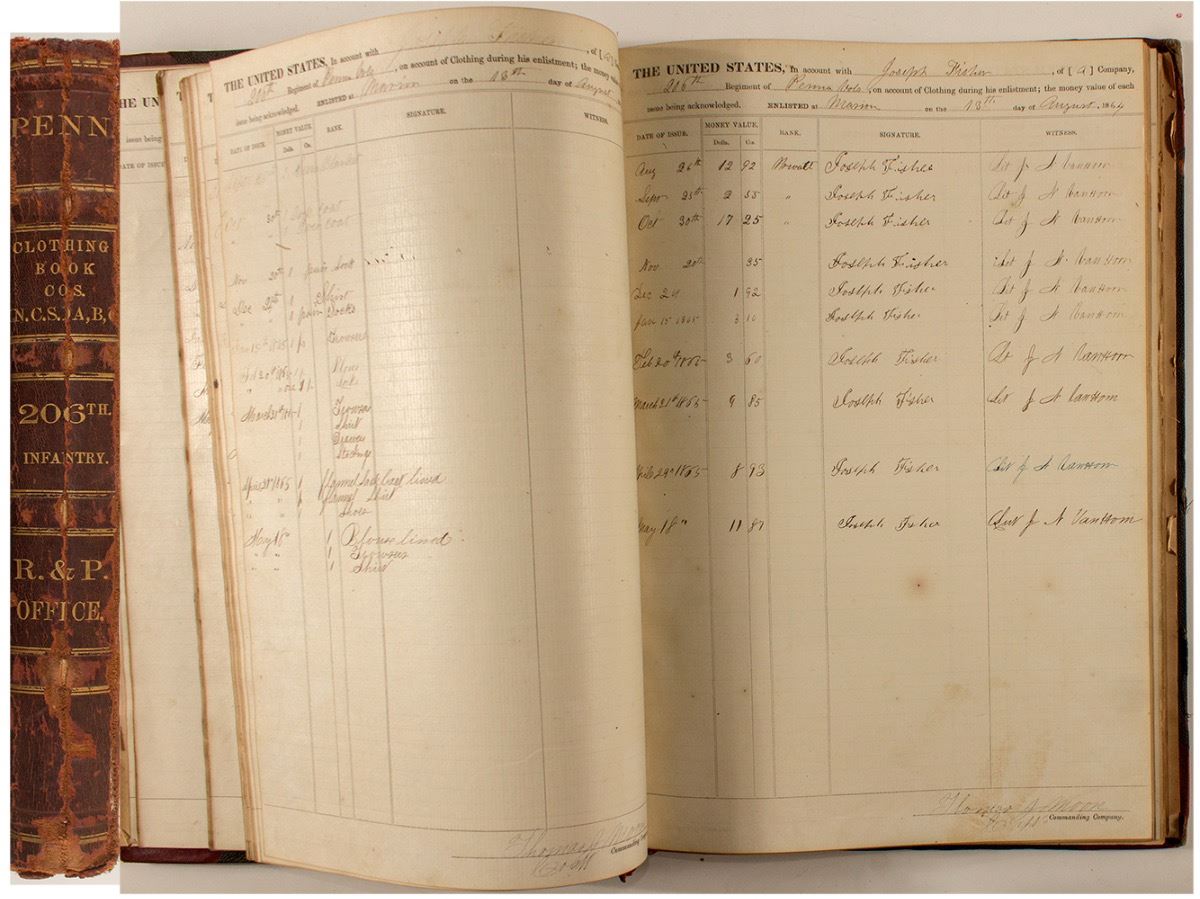 PENN.
CLOTHING
BOOK
COS.
N.C.S. A,B,
206TH.
INFANTRY.
R. & P.
OFFICE.
HE UNITED
THE UNITED STATES, In account with Joseph , of [A]
206th Regiment of Penna Vols , on account of Clothing during his enlistment; the money
issue being acknowledged. ENLISTED at Marion on the 13th day of August
DATE OF ISSUE. MONEY VALUE. RANK. SIGNATURE. WITNESS.
Dolls. Cts.
Oct 30th 1 Coat
1 Coat
Nov 20th 1 pair Sock
Dec 24th 1 Shirt
" 1 pair Socks
Jan 15th 1865 1 pr Trowsers
Feb 20th 1865 1
March 21st 1865 1 Trowsers
1 Shirt
1 Drawers
1 Stockings
1865 1 Flannel Sack Coat lined
" " 1 Flannel Shirt
" " 1 Shoes
May 18th 1 Blouse lined
" " 1 Trowsers
" " 1 Shirt
Thomas
Commanding
THE UNITED STATES, In account with Joseph Fisher , of [A] Company,
206th Regiment of Penna Vols , on account of Clothing during his enlistment; the money value of each
issue being acknowledged. ENLISTED at Marion on the 13th day of August, 1864
DATE OF ISSUE. MONEY VALUE. RANK. SIGNATURE. WITNESS.
Dolls. Cts.
Aug 26th 12 92 Privat Joseph Fisher Lt J N VanHorn
Sept 25th 2 35 " Joseph Fisher Lt J N VanHorn
Oct 30th 17 25 " Joseph Fisher Lt J N VanHorn
Nov 20th 35 Joseph Fisher Lt J N VanHorn
Dec 24 1 92 Joseph Fisher Lt J N VanHorn
Jan 15 1865 3 10 Joseph Fisher Lt J N VanHorn
Feb 20th 1865 3 60 Joseph Fisher Lt J N VanHorn
March 21st 1865 9 85 Joseph Fisher Lt J N VanHorn
1865 8 93 Joseph Fisher Lt J N VanHorn
May 18" 11 87 Joseph Fisher Lut J N VanHorn
Thomas Moore
Commanding Company.